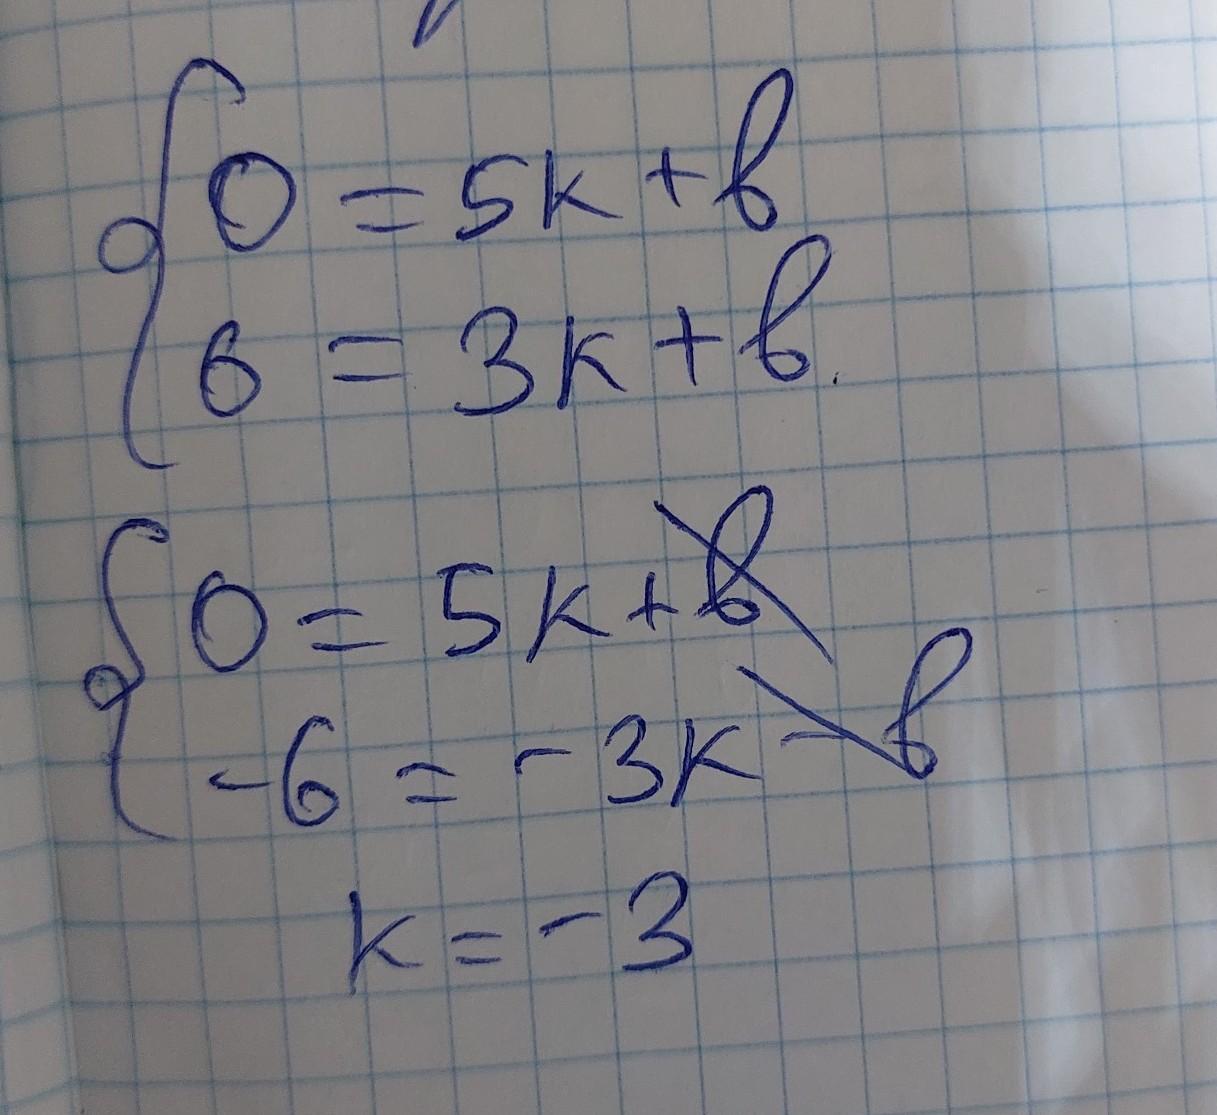 0 = 5k + b
6 = 3k + b
0 = 5k + b
-6 = -3k - b
k = -3